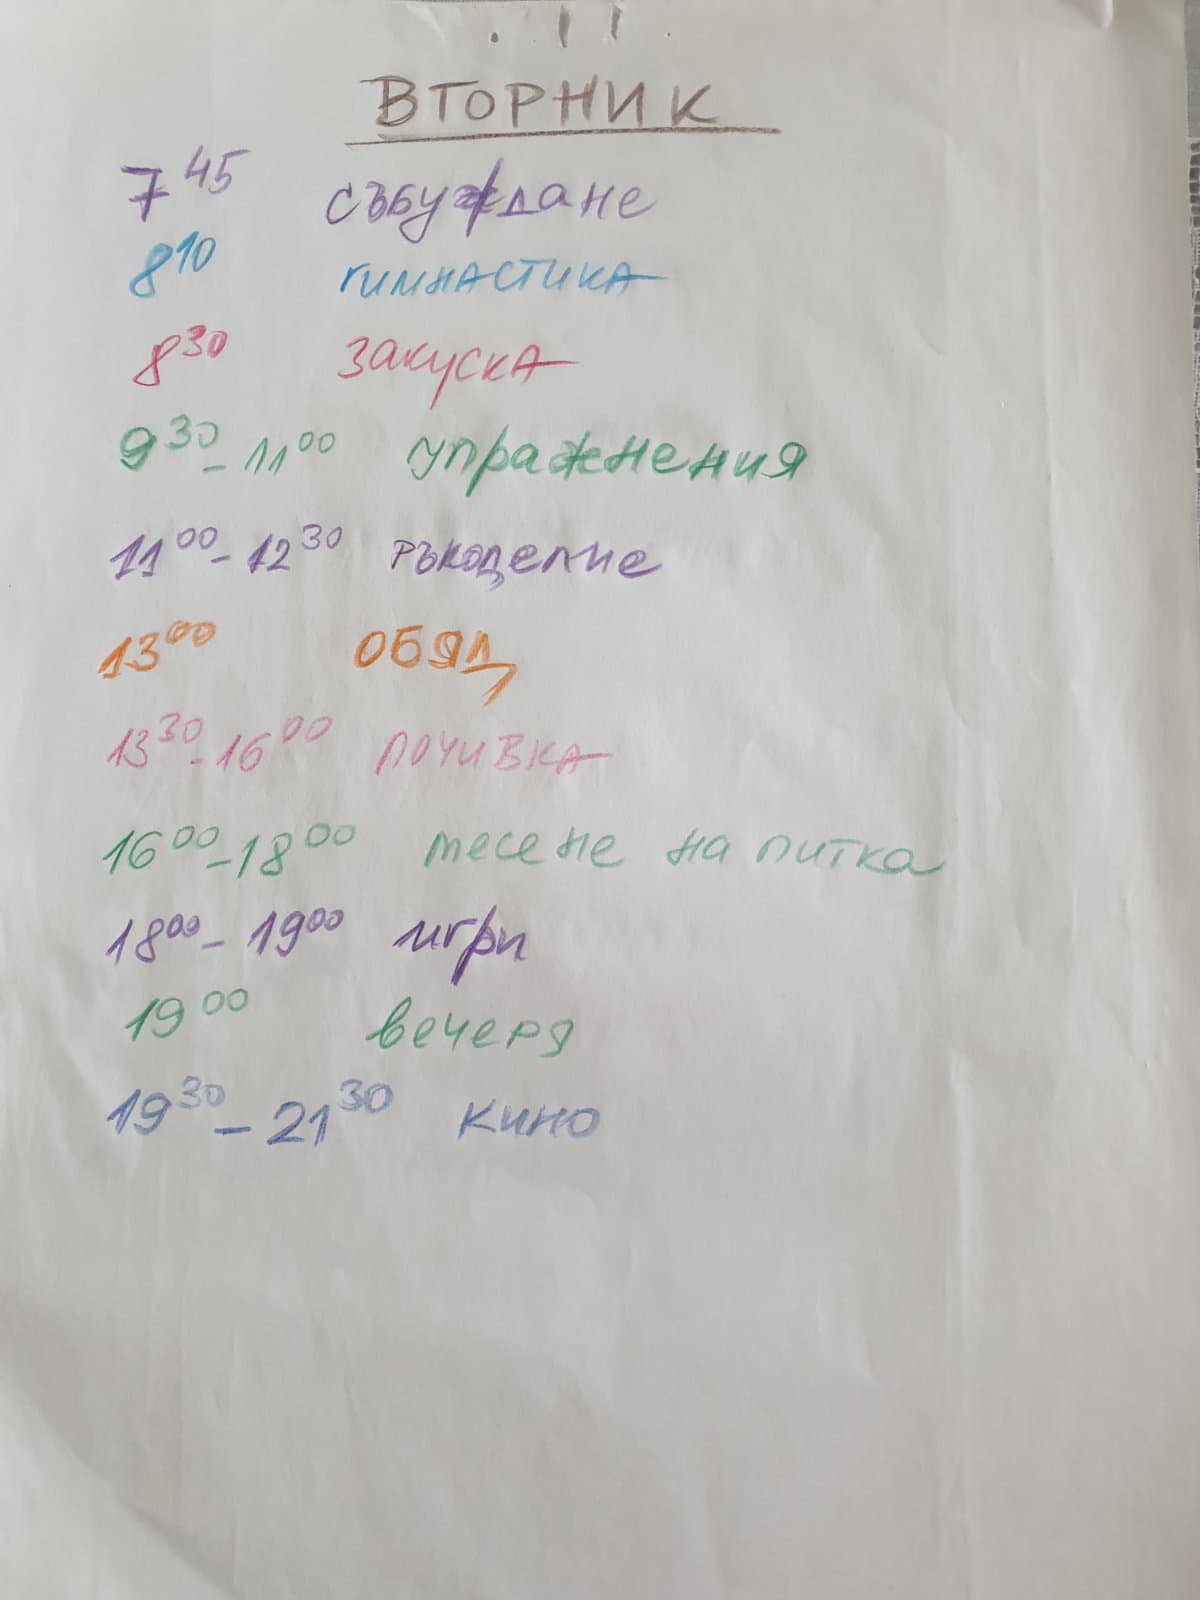 ВТОРНИК
7⁴⁵ събуждане
8¹⁰ гимнастика
8³⁰ закуска
9³⁰ - 11⁰⁰ упражнения
11⁰⁰ - 12³⁰ ръкоделие
13⁰⁰ обяд
13³⁰ - 16⁰⁰ почивка
16⁰⁰ - 18⁰⁰ месене на питка
18⁰⁰ - 19⁰⁰ игри
19⁰⁰ вечеря
19³⁰ - 21³⁰ кино